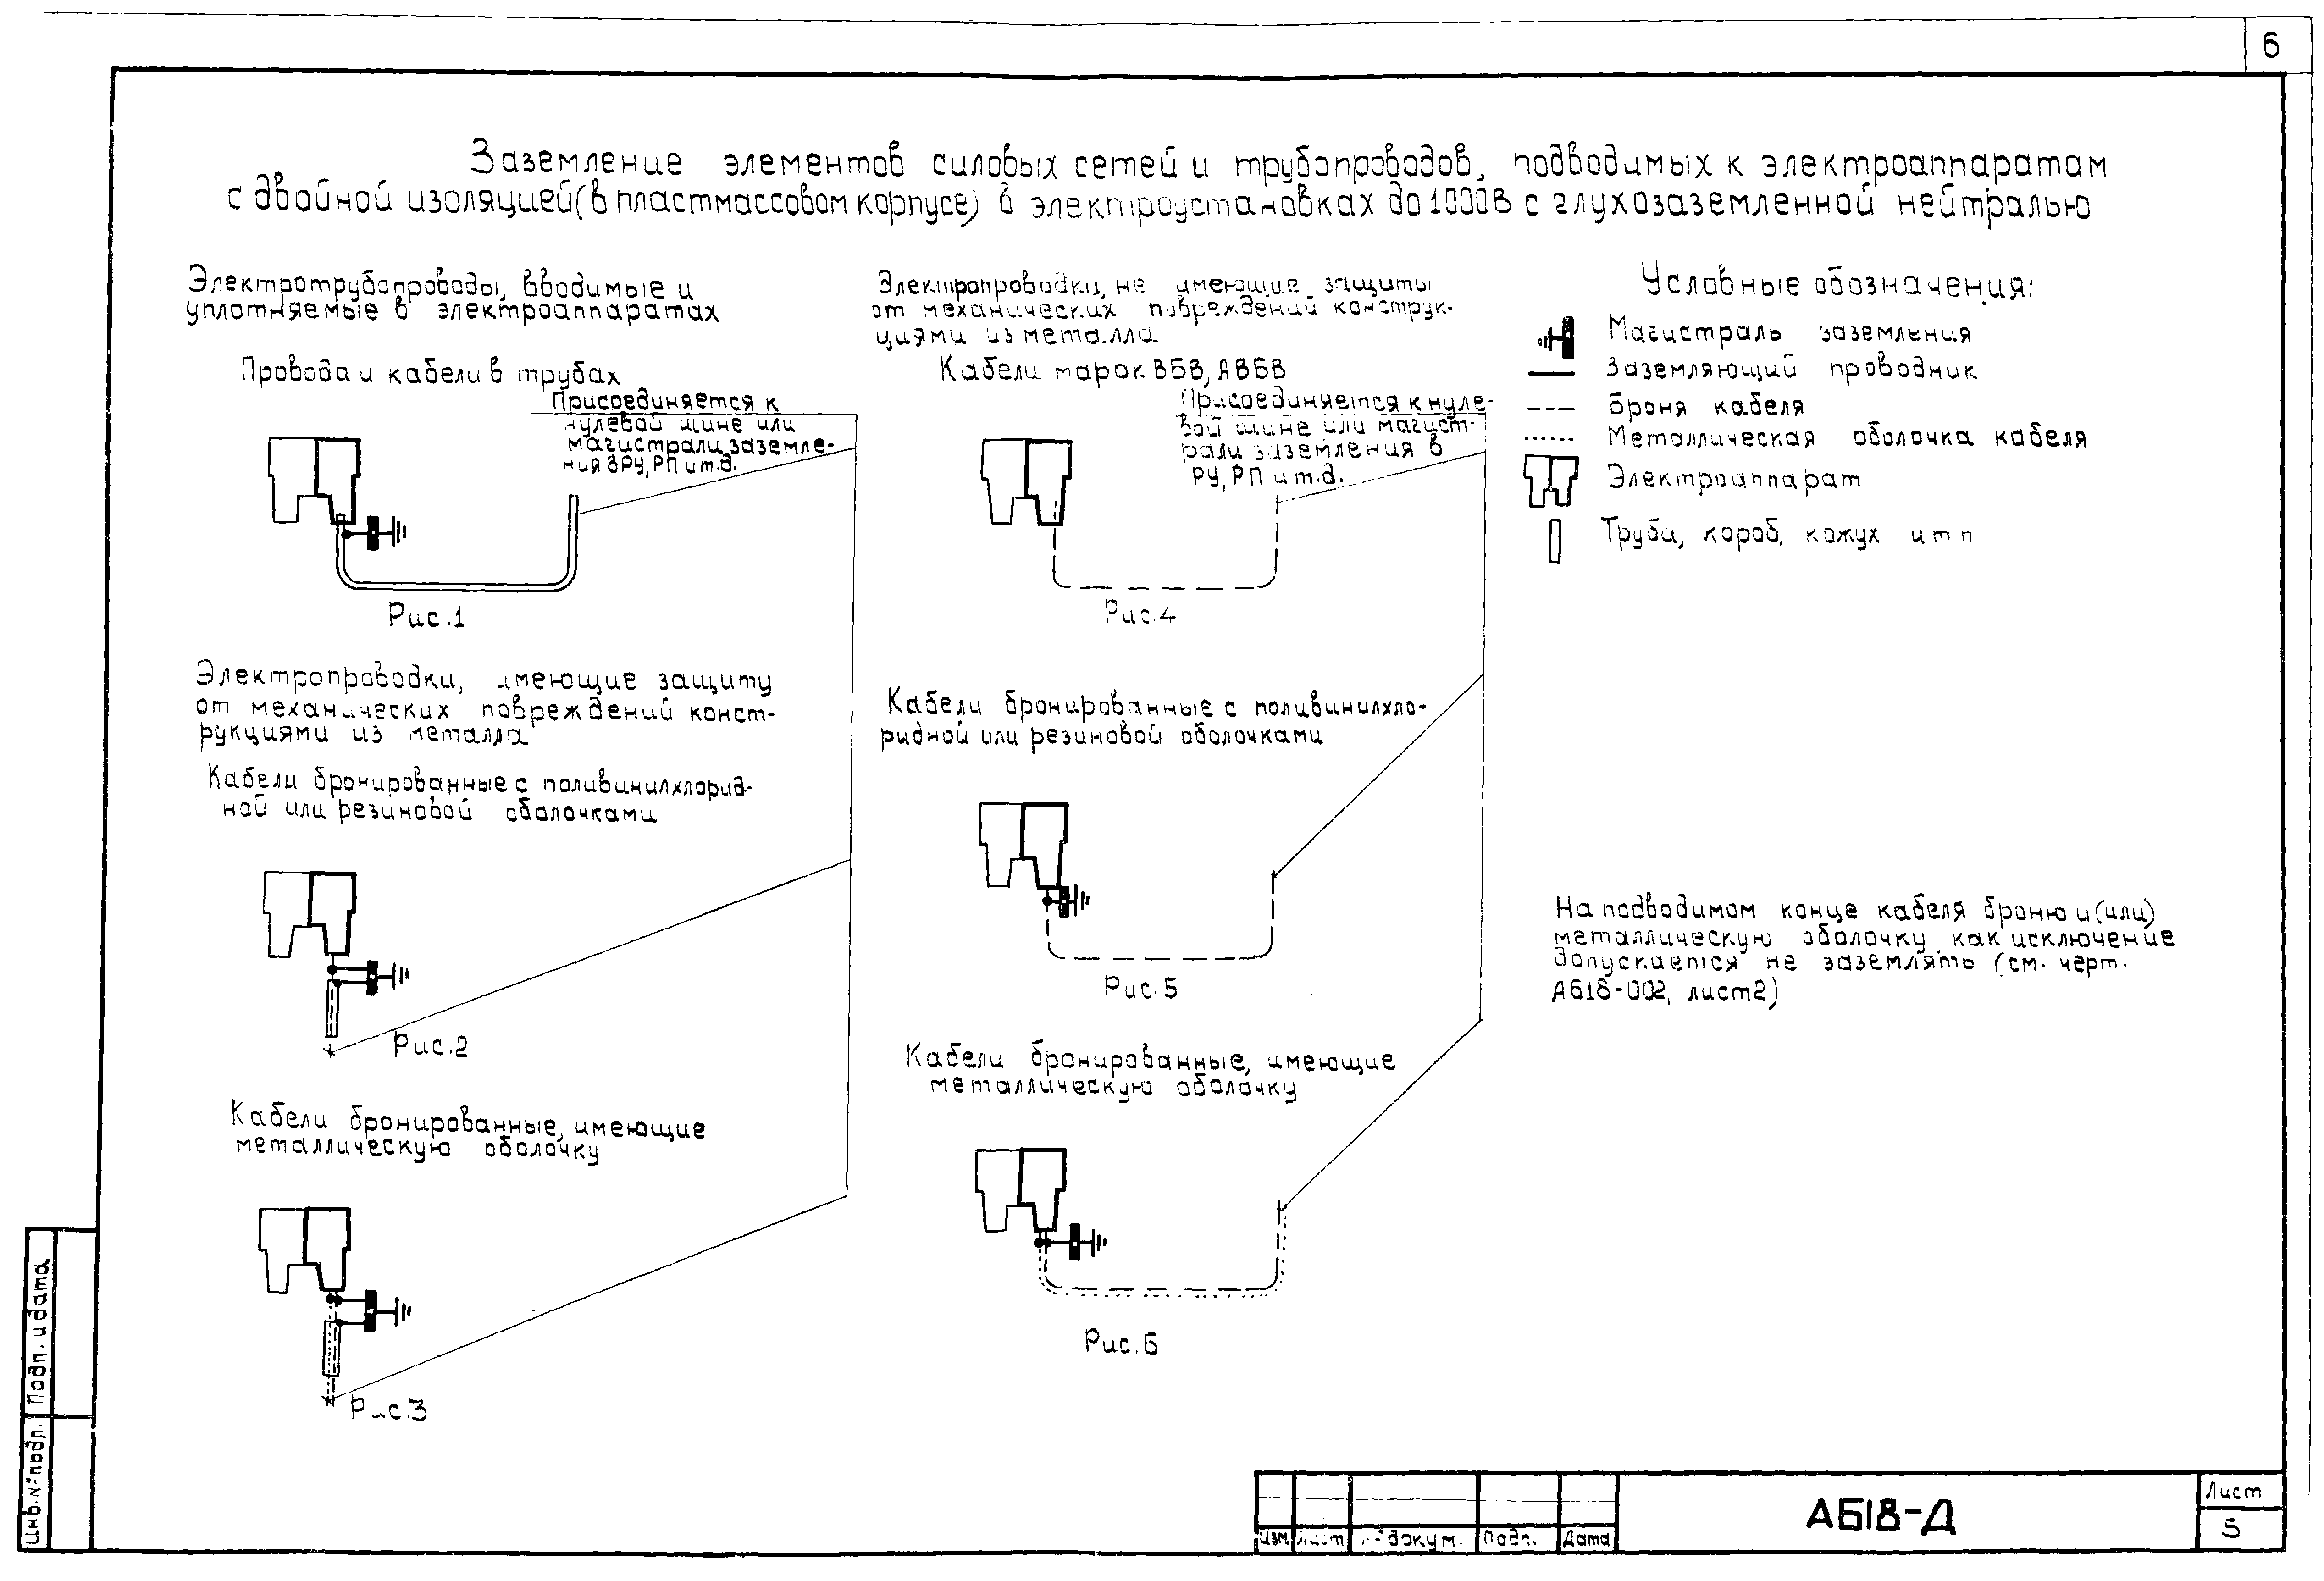 6
Заземление элементов силовых сетей и трубопроводов, подводимых к электроаппаратам
с двойной изоляцией (в пластмассовом корпусе) в электроустановках до 1000В с глухозаземленной нейтралью
Электротрубопроводы, вводимые и
уплотняемые в электроаппаратах
Провода и кабели в трубах
Присоединяется к
нулевой шине или
магистрали заземле-
ния в РУ, РП и т.д.
Рис.1
Электропроводки, имеющие защиту
от механических повреждений конст-
рукциями из металла
Кабели бронированные с поливинилхлорид-
ной или резиновой оболочками
Рис.2
Кабели бронированные, имеющие
металлическую оболочку
Рис.3
Электропроводки, не имеющие защиты
от механических повреждений конструк-
циями из металла
Кабели марок ВБВ, АВБВ
Присоединяется к нуле-
вой шине или магист-
рали заземления в
РУ, РП и т.д.
Рис.4
Кабели бронированные с поливинилхло-
ридной или резиновой оболочками
Рис.5
Кабели бронированные, имеющие
металлическую оболочку
Рис.6
Условные обозначения:
Магистраль заземления
Заземляющий проводник
Броня кабеля
Металлическая оболочка кабеля
Электроаппарат
Труба, короб, кожух и т п
На подводимом конце кабеля броню и (или)
металлическую оболочку, как исключение
допускается не заземлять (см. черт.
А618-002, лист 2)
Инв. № подл.
Подп. и дата
Изм
Лист
№ докум.
Подп.
Дата
А618-Д
Лист
5